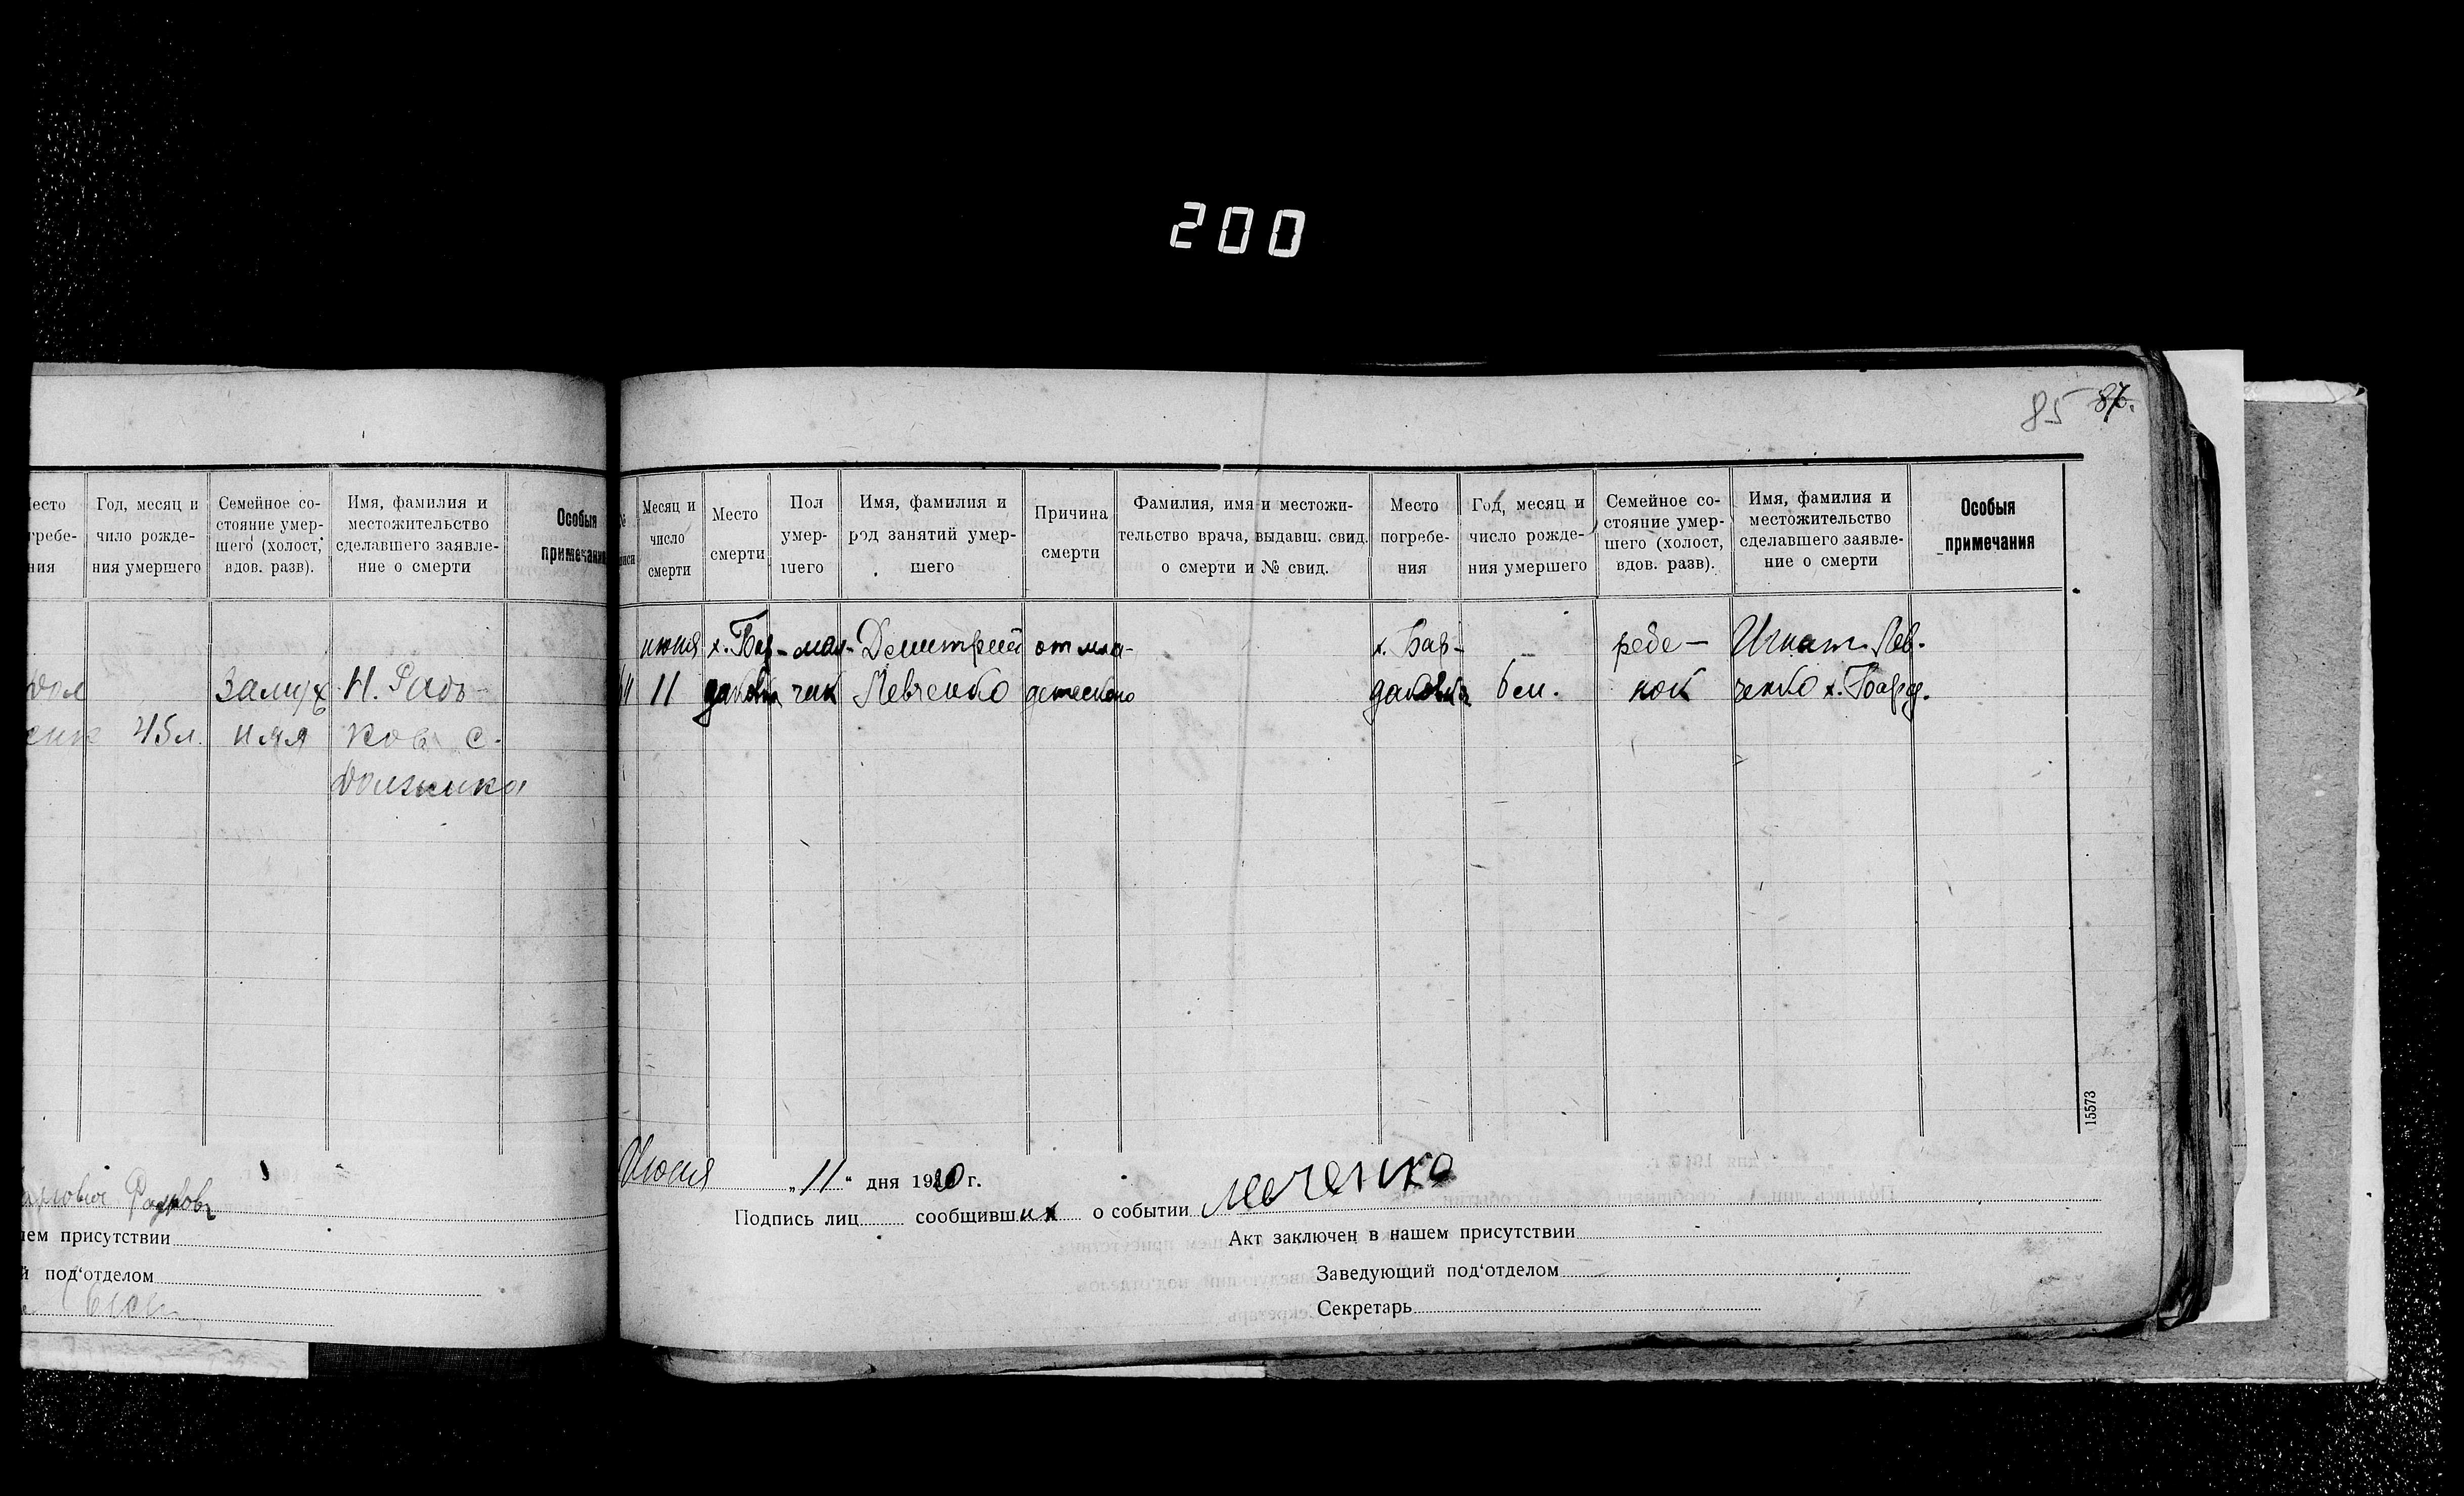 200
85 87.
есто
гребе-
ния
Год, месяц и
чило рожде-
ния умершего
Семейное со-
стояние умер-
шего (холост,
вдов. разв).
Имя, фамилия и
местожительство
сделавшего заявле-
ние о смерти
Особыя
примечания
45 л.
Замуж
няя
Н. Радь
ков с.
Должика
ем присутствии
под'отделом
Месяц и
число
смерти
Место
смерти
Пол
умер-
шего
Имя, фамилия и
род занятий умер-
шего
Причина
смерти
Фамилия, имя и местожи-
тельство врача, выдавш. свид.
о смерти и № свид.
Место
погребе-
ния
Год, месяц и
число рожде-
ния умершего
Семейное со-
стояние умер-
шего (холост,
вдов. разв).
Имя, фамилия и
местожительство
сделавшего заявле-
ние о смерти
Особыя
примечания
июня х. Бар- маль- Демитрий от мла- х. Бар- — ребе- Игнат. Лев-
11 11 даковка чик Левченко денческого даковка 6 м. нок ченко х. Бард.
15573
Июня „11" дня 1920 г.
Подпись лиц сообщивших о событии Левченко
Акт заключен в нашем присутствии
Заведующий под'отделом
Секретарь